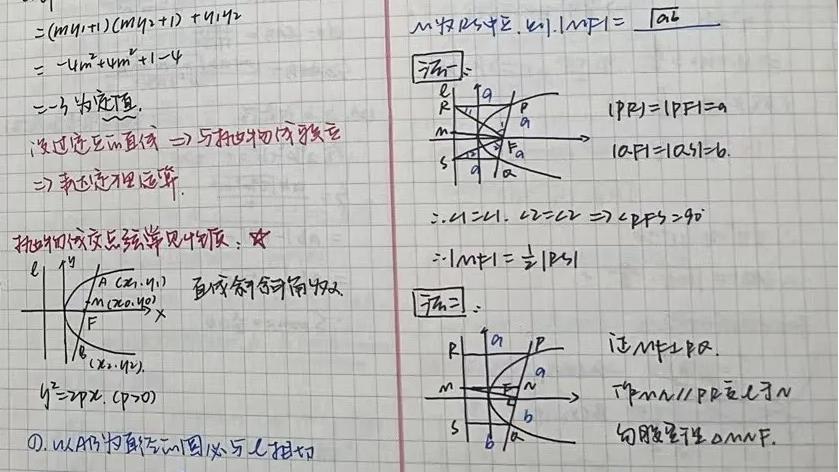 =(my₁+1)(my₂+1)+y₁y₂
=-4m²+4m²+1-4
=-3 为定值.
设过定点的直线 ⇒ 与抛物线联立
⇒ 韦达定理运算.
抛物线焦点弦常见性质: ☆
l
y
A (x₁,y₁)
M(x₀,y₀)
F
x
B
(x₂,y₂).
直线倾斜角为α
y²=2px.(p>0)
①.以AB为直径的圆必与l相切
M为RS中点,则|MF|= √ab
法一:
l
a
R
P
a
M
F
a
S
a
Q
|PR|=|PF|=a
|QF|=|QS|=b.
∴∠1=∠1. ∠2=∠2 ⇒ ∠RFS=90°
∴|MF|=½|RS|
法二:
R
a
P
a
M
F
N
b
S
b
Q
证MF⊥PQ.
作MN//PR交l于N
勾股定理△MNF.